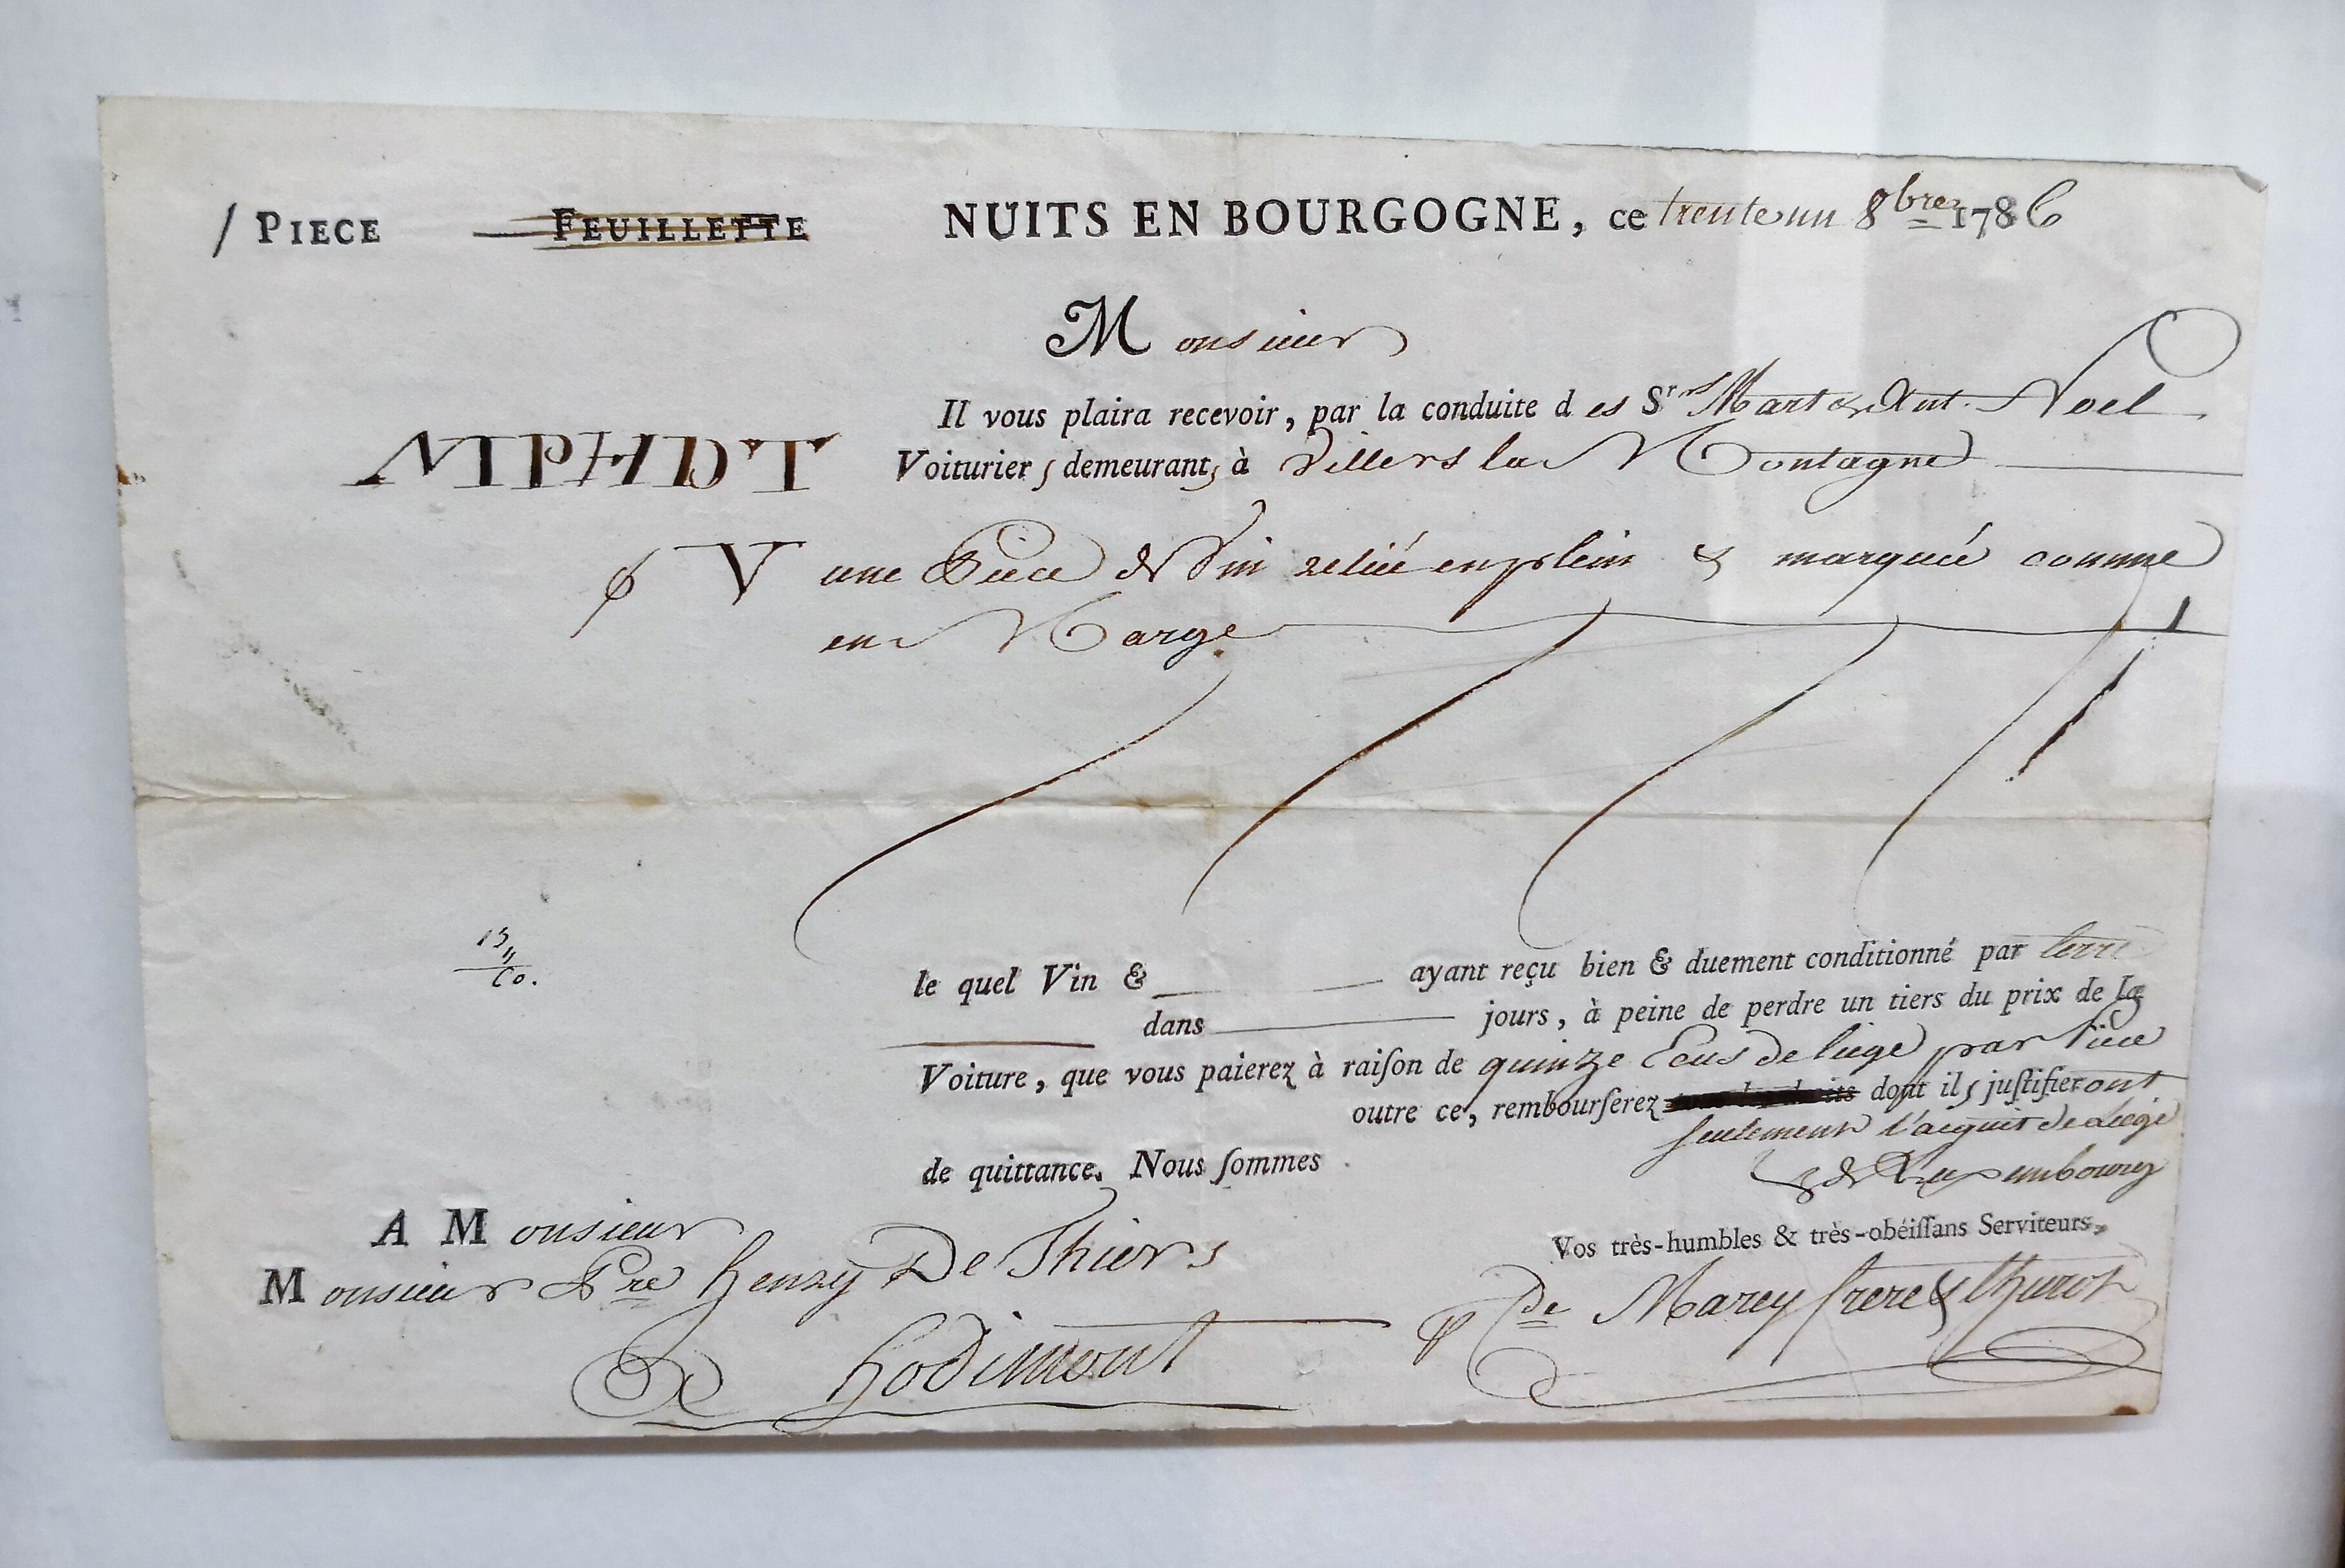 / PIECE — FEUILLETTE NUITS EN BOURGOGNE, ce trente un 8bre 1786
Monsieur
Il vous plaira recevoir, par la conduite des Srs Mart & Ant. Noel
Voituriers demeurants à Villers la Montagne
V une Piece de Vin reliée en plein & marquée comme
en Marge
15
60.
le quel Vin & ayant reçu bien & duement conditionné par terre
dans jours, à peine de perdre un tiers du prix de la
Voiture, que vous paierez à raiſon de quinze Ecus de liege par Piece
outre ce, rembourſerez dont ils juſtifieront
seulement l'acquit de Liege
& de Luxembourg
de quittance. Nous ſommes
Vos très-humbles & très-obéiſſans Serviteurs,
A Monsieur
Monsieur Pre henry De Thiers
hodimont
de Marey frere & thurot